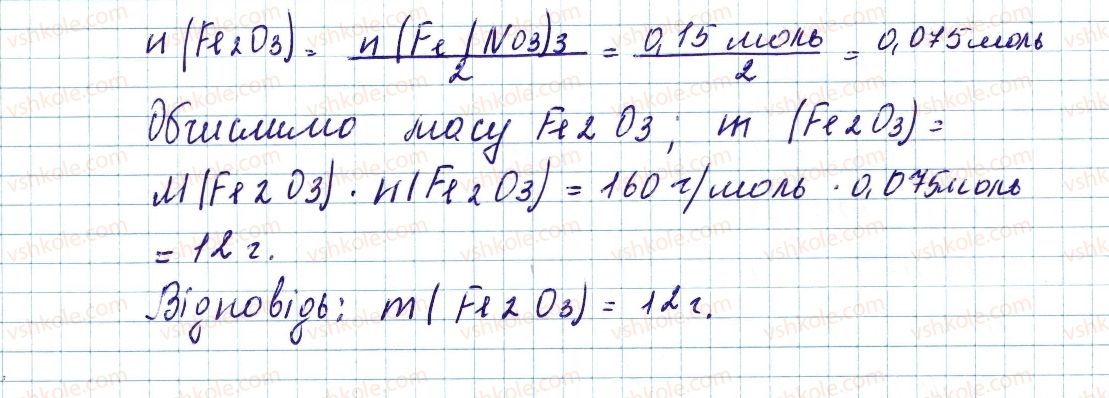 n(Fe2O3) = n(Fe(NO3)3 / 2 = 0,15 моль / 2 = 0,075 моль
Обчислимо масу Fe2O3; m (Fe2O3) =
M(Fe2O3) · n(Fe2O3) = 160 г/моль · 0,075 моль
= 12 г.
Відповідь: m(Fe2O3) = 12 г.